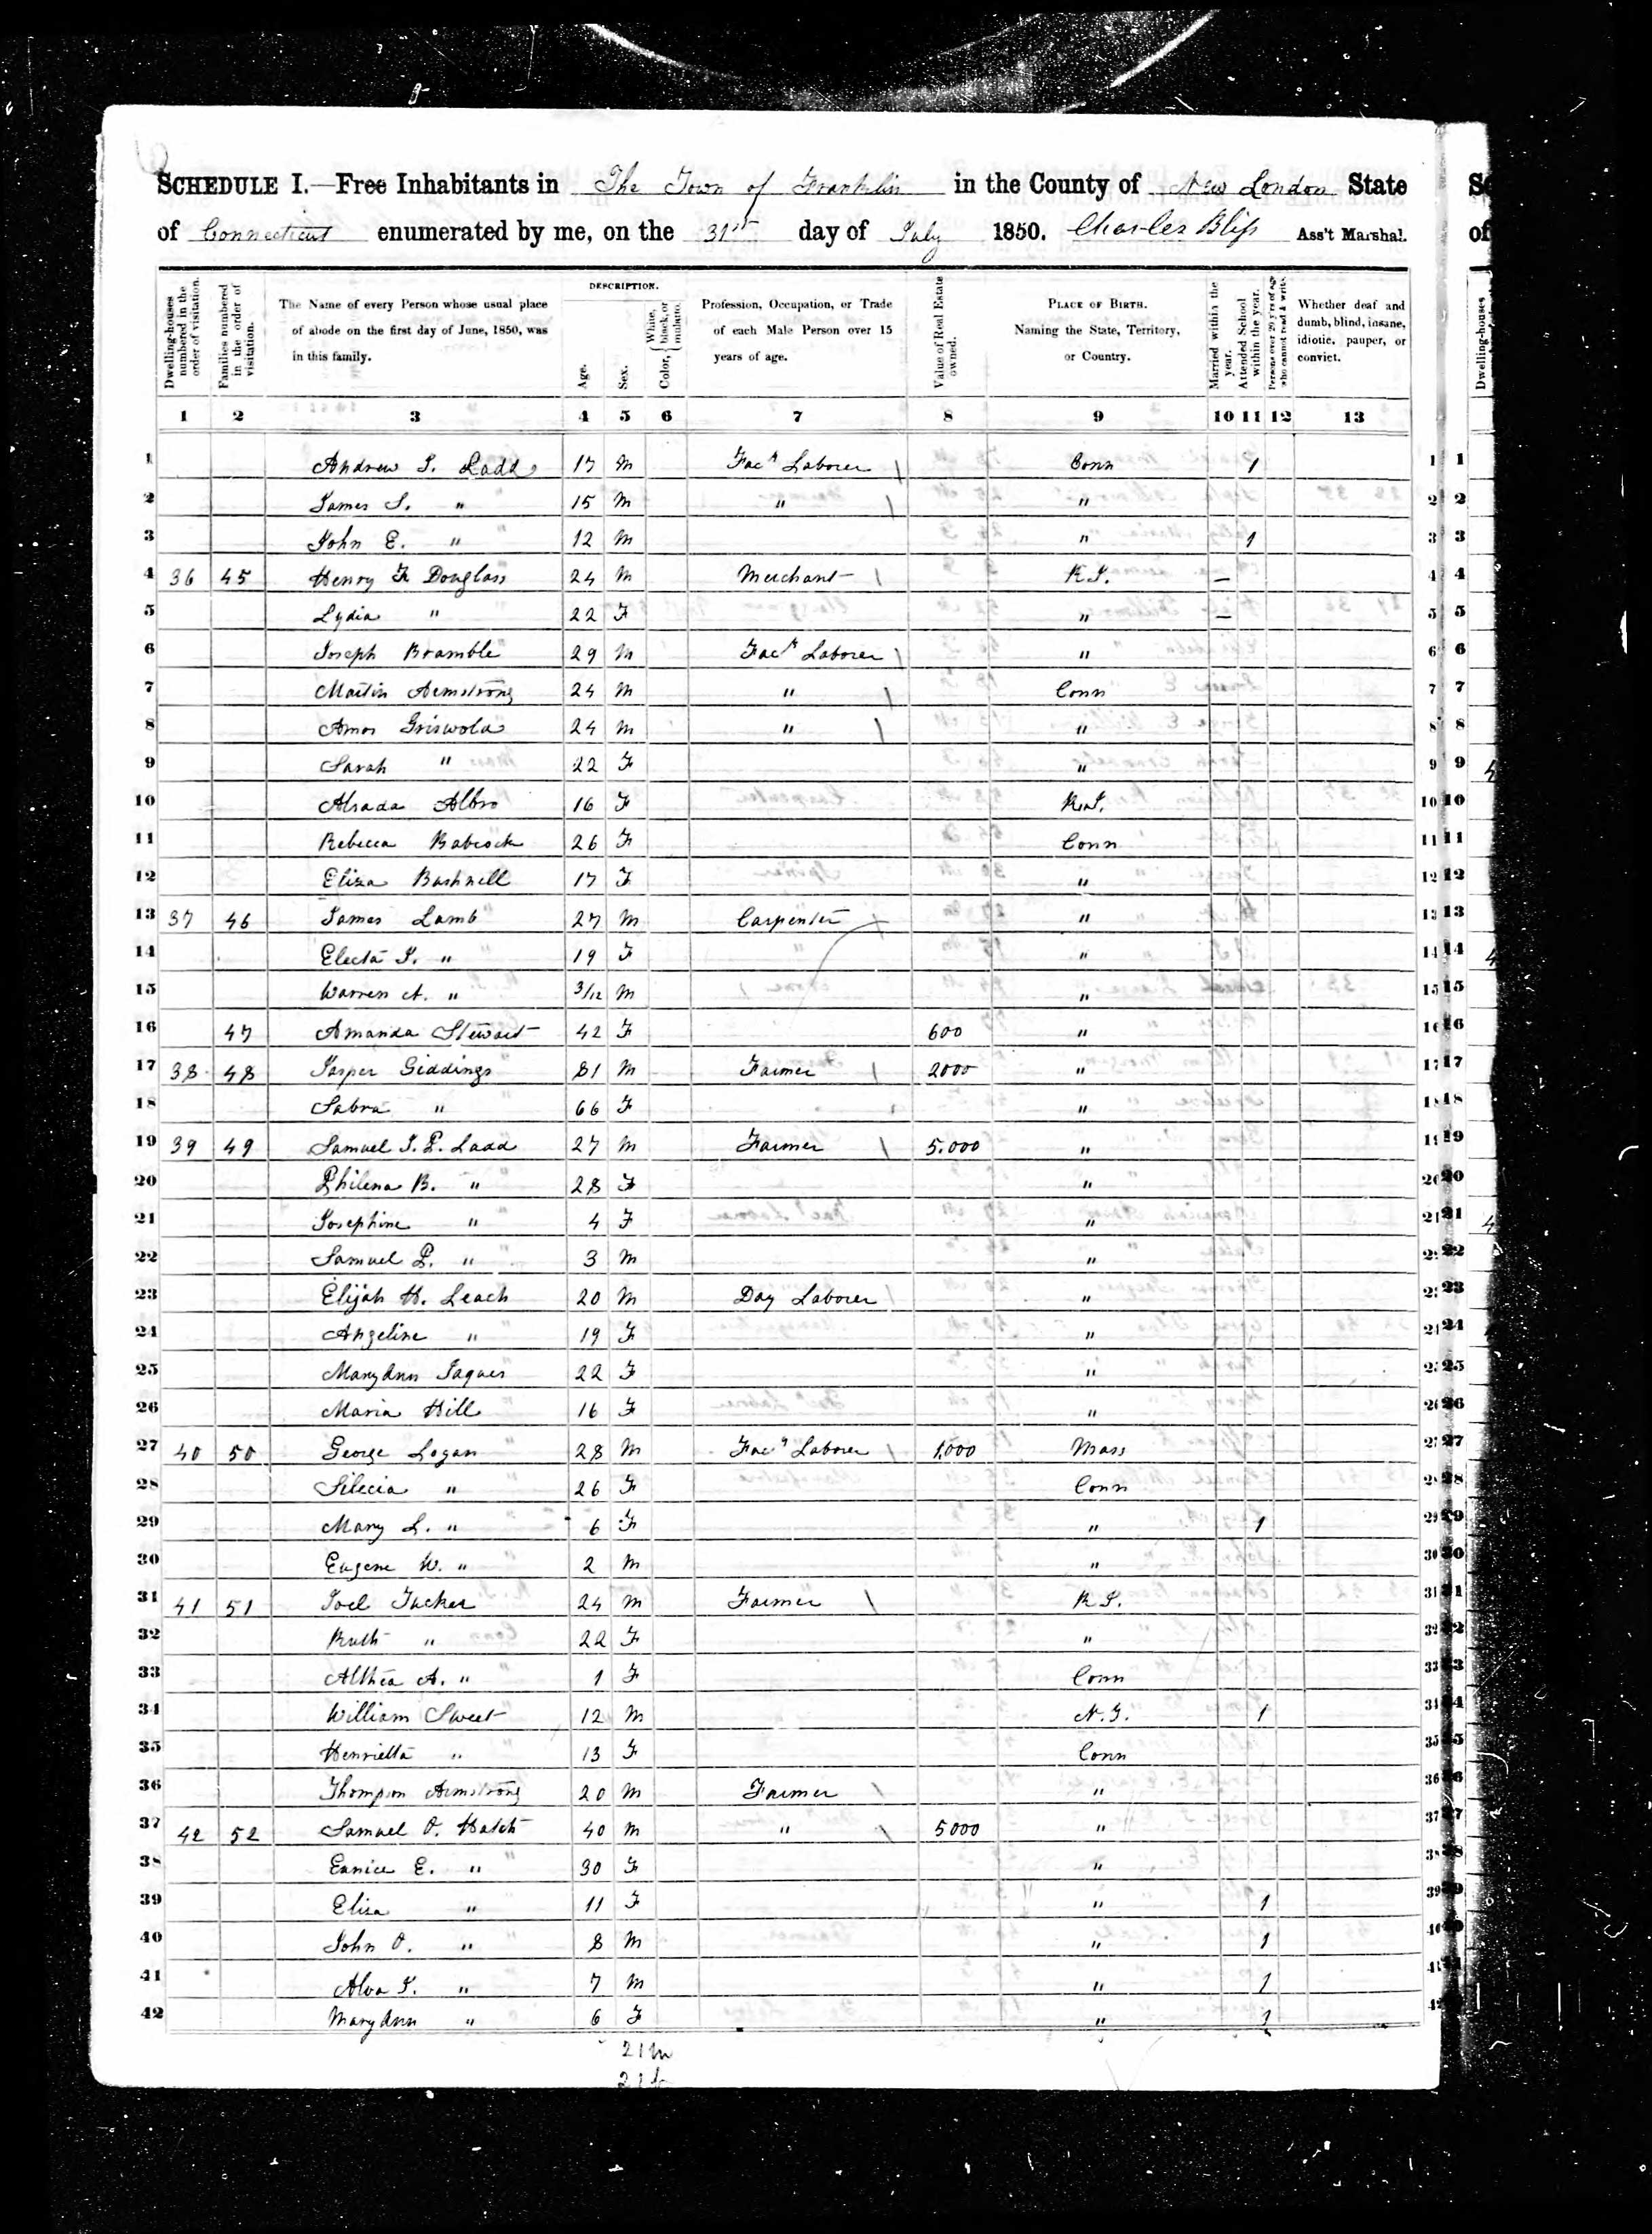 SCHEDULE I.—Free Inhabitants in The Town of Franklin in the County of New London State
of Connecticut enumerated by me, on the 31st day of July 1850. Charles Bliss Ass't Marshal.
Dwelling-houses numbered in the order of visitation.
Families numbered in the order of visitation.
The Name of every Person whose usual place of abode on the first day of June, 1850, was in this family.
DESCRIPTION.
Age.
Sex.
Color, White, black, or mulatto.
Profession, Occupation, or Trade of each Male Person over 15 years of age.
Value of Real Estate owned.
PLACE OF BIRTH. Naming the State, Territory, or Country.
Married within the year.
Attended School within the year.
Persons over 20 y'rs of age who cannot read & write.
Whether deaf and dumb, blind, insane, idiotic, pauper, or convict.
1 2 3 4 5 6 7 8 9 10 11 12 13
1 Andrew J. Ladd 17 M Facy Laborer Conn 1 1
2 James S. " 15 M " " 2
3 John E. " 12 M " 1 3
4 36 45 Henry F. Douglass 24 M Merchant R.I. — 4
5 Lydia " 22 F " — 5
6 Joseph Bramble 29 M Facy Laborer " 6
7 Martin Armstrong 24 M " Conn 7
8 Amos Griswold 24 M " " 8
9 Sarah " 22 F " 9
10 Alzada Albro 16 F R.I. 10
11 Rebecca Babcock 26 F Conn 11
12 Eliza Bushnell 17 F " 12
13 37 46 James Lamb 27 M Carpenter " 13
14 Electa J. " 19 F " 14
15 Warren A. " 3/12 M " 15
16 47 Amanda Stewart 42 F 600 " 16
17 38 48 Jasper Giddings 81 M Farmer 2000 " 17
18 Sabra " 66 F " 18
19 39 49 Samuel J. P. Ladd 27 M Farmer 5.000 " 19
20 Philena B. " 28 F " 20
21 Josephine " 4 F " 21
22 Samuel P. " 3 M " 22
23 Elijah H. Leach 20 M Day Laborer " 23
24 Angeline " 19 F " 24
25 Mary Ann Jaques 22 F " 25
26 Maria Hill 16 F " 26
27 40 50 George Logan 28 M Facy Laborer 1,000 Mass 27
28 Silecia " 26 F Conn 28
29 Mary L. " 6 F " 1 29
30 Eugene W. " 2 M " 30
31 41 51 Joel Tucker 24 M Farmer R.I. 31
32 Ruth " 22 F " 32
33 Althea A. " 1 F Conn 33
34 William Sweet 12 M N.Y. 1 34
35 Henrietta " 13 F Conn 35
36 Thompson Armstrong 20 M Farmer " 36
37 42 52 Samuel O. Hatch 40 M " 5000 " 37
38 Eunice E. " 30 F " 38
39 Eliza " 11 F " 1 39
40 John O. " 8 M " 1 40
41 Alva J. " 7 M " 1 41
42 Mary Ann " 6 F " 1 42
21 m
21 f